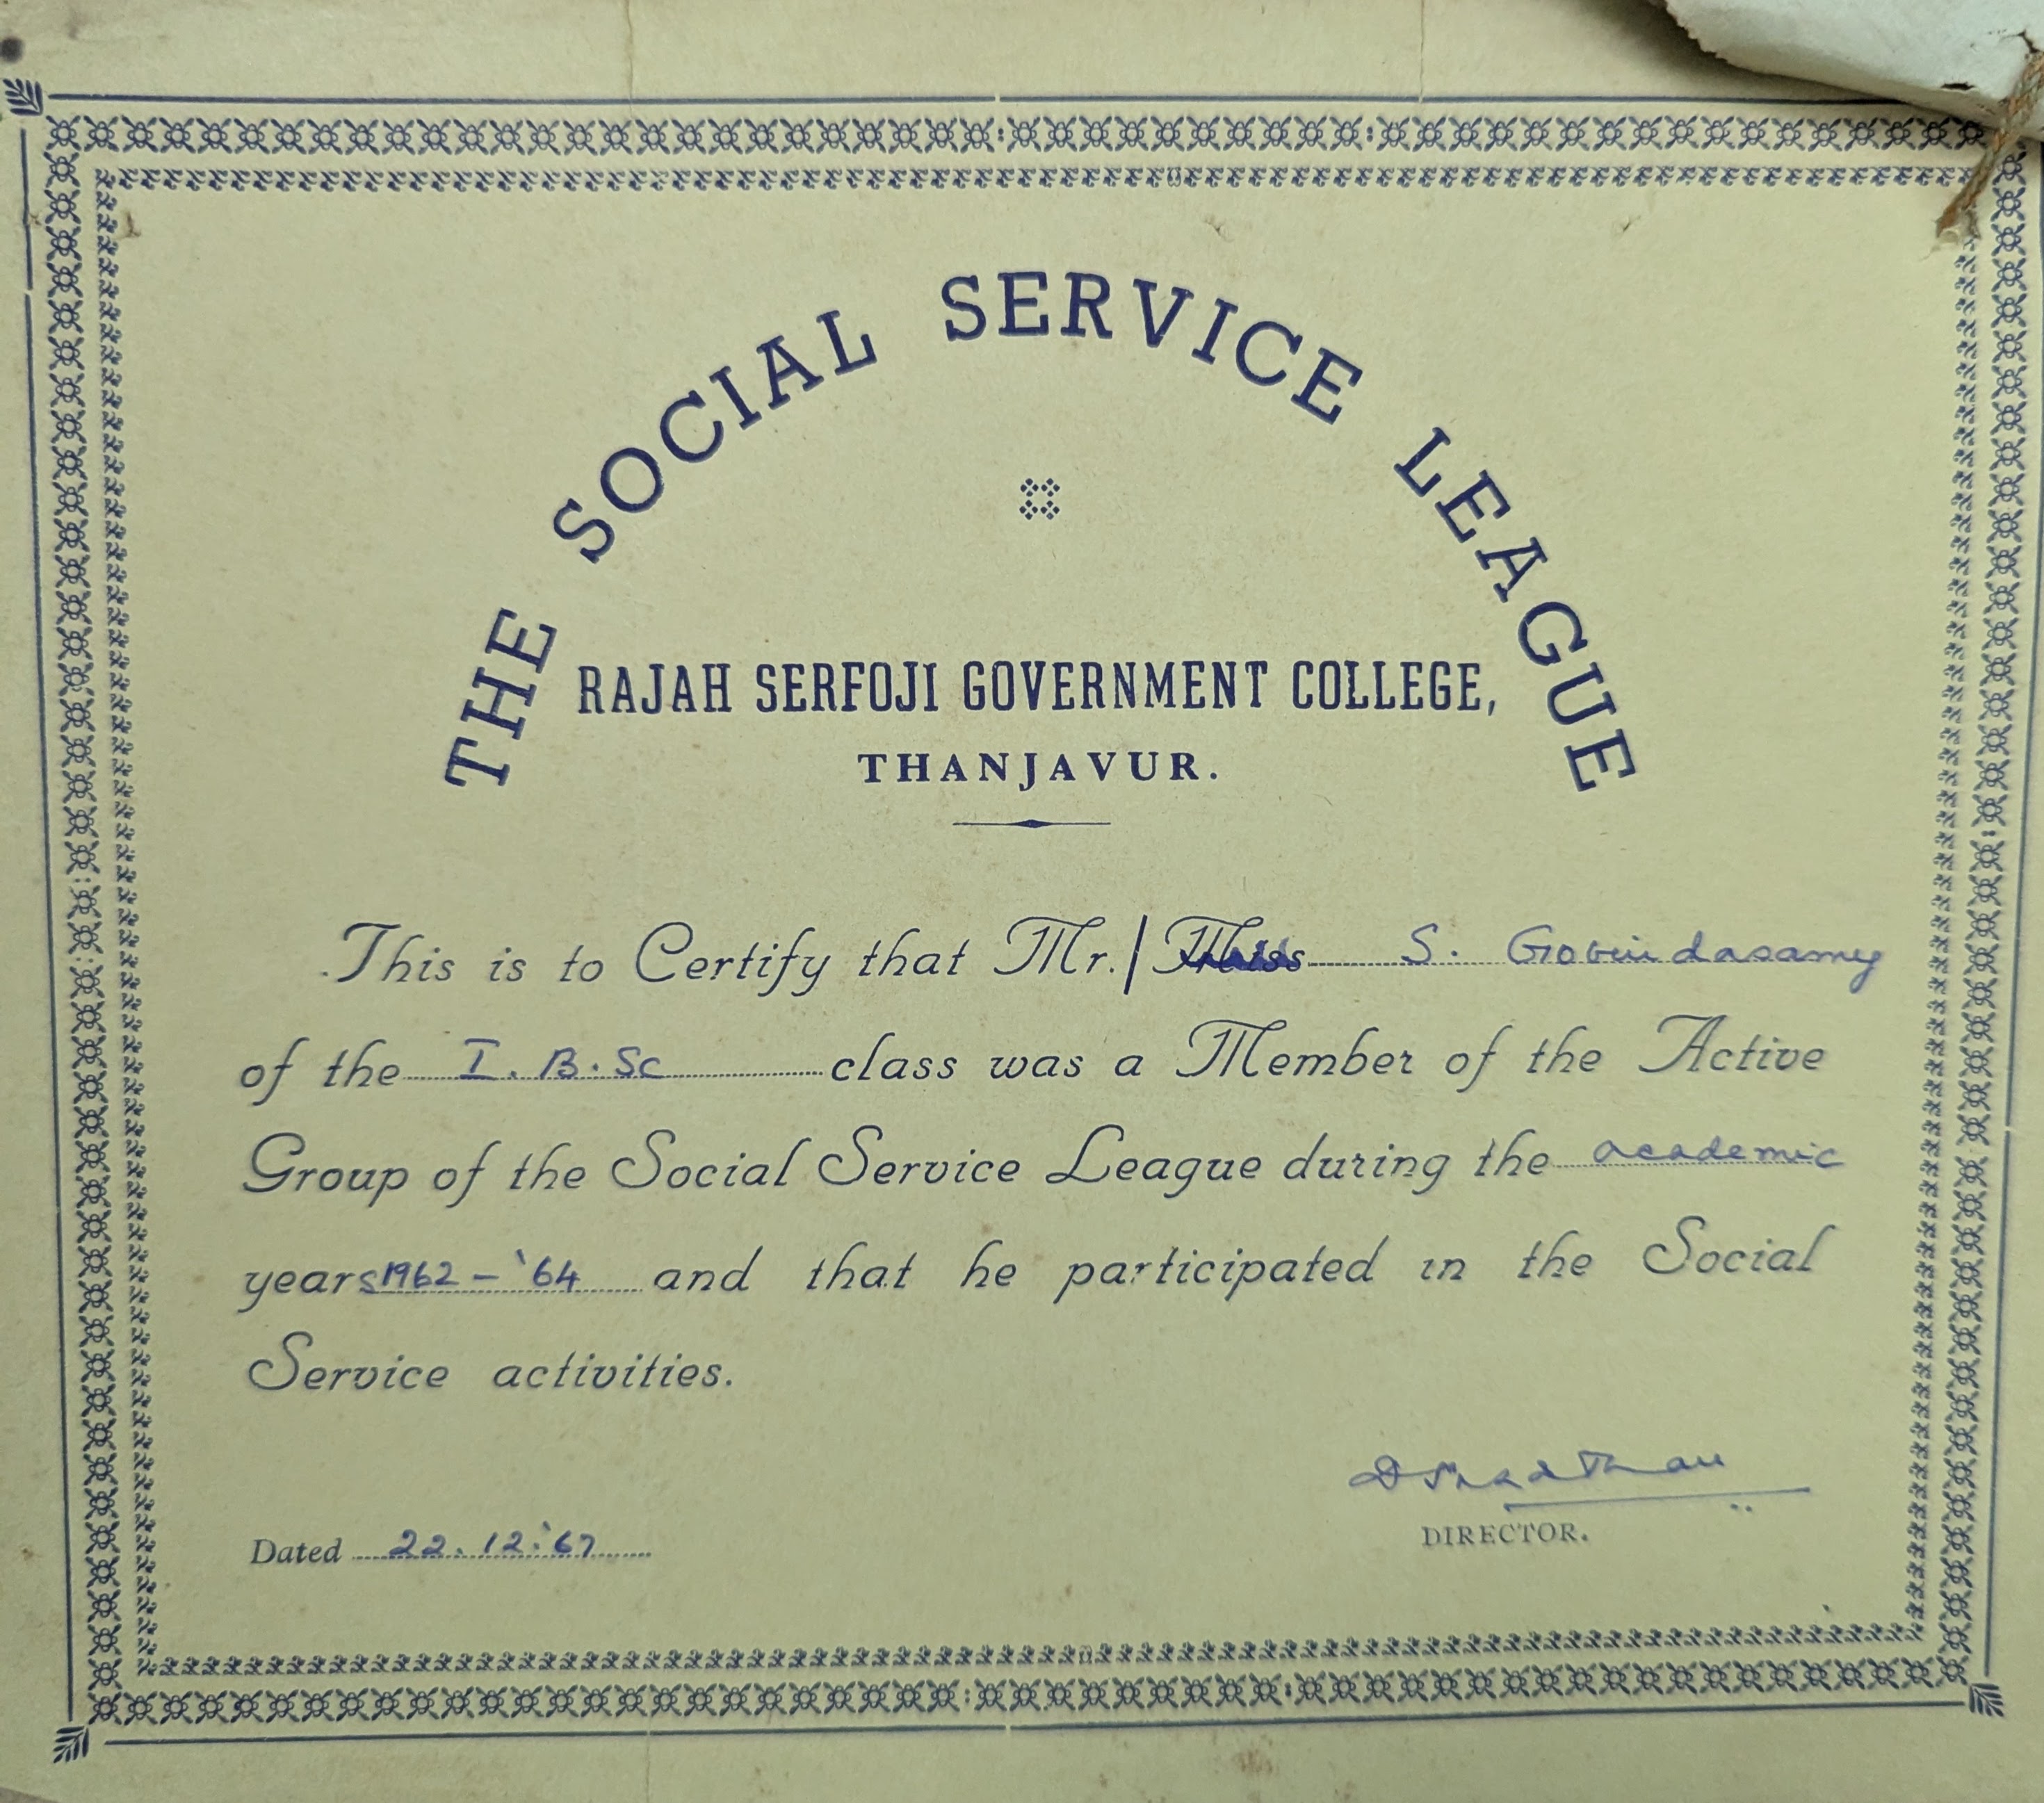 THE SOCIAL SERVICE LEAGUE
RAJAH SERFOJI GOVERNMENT COLLEGE,
THANJAVUR.
This is to Certify that Mr./Miss S. Govindasamy
of the I. B.Sc class was a Member of the Active
Group of the Social Service League during the academic
years 1962-'64 and that he participated in the Social
Service activities.
Dated 22.12.'67
DIRECTOR.